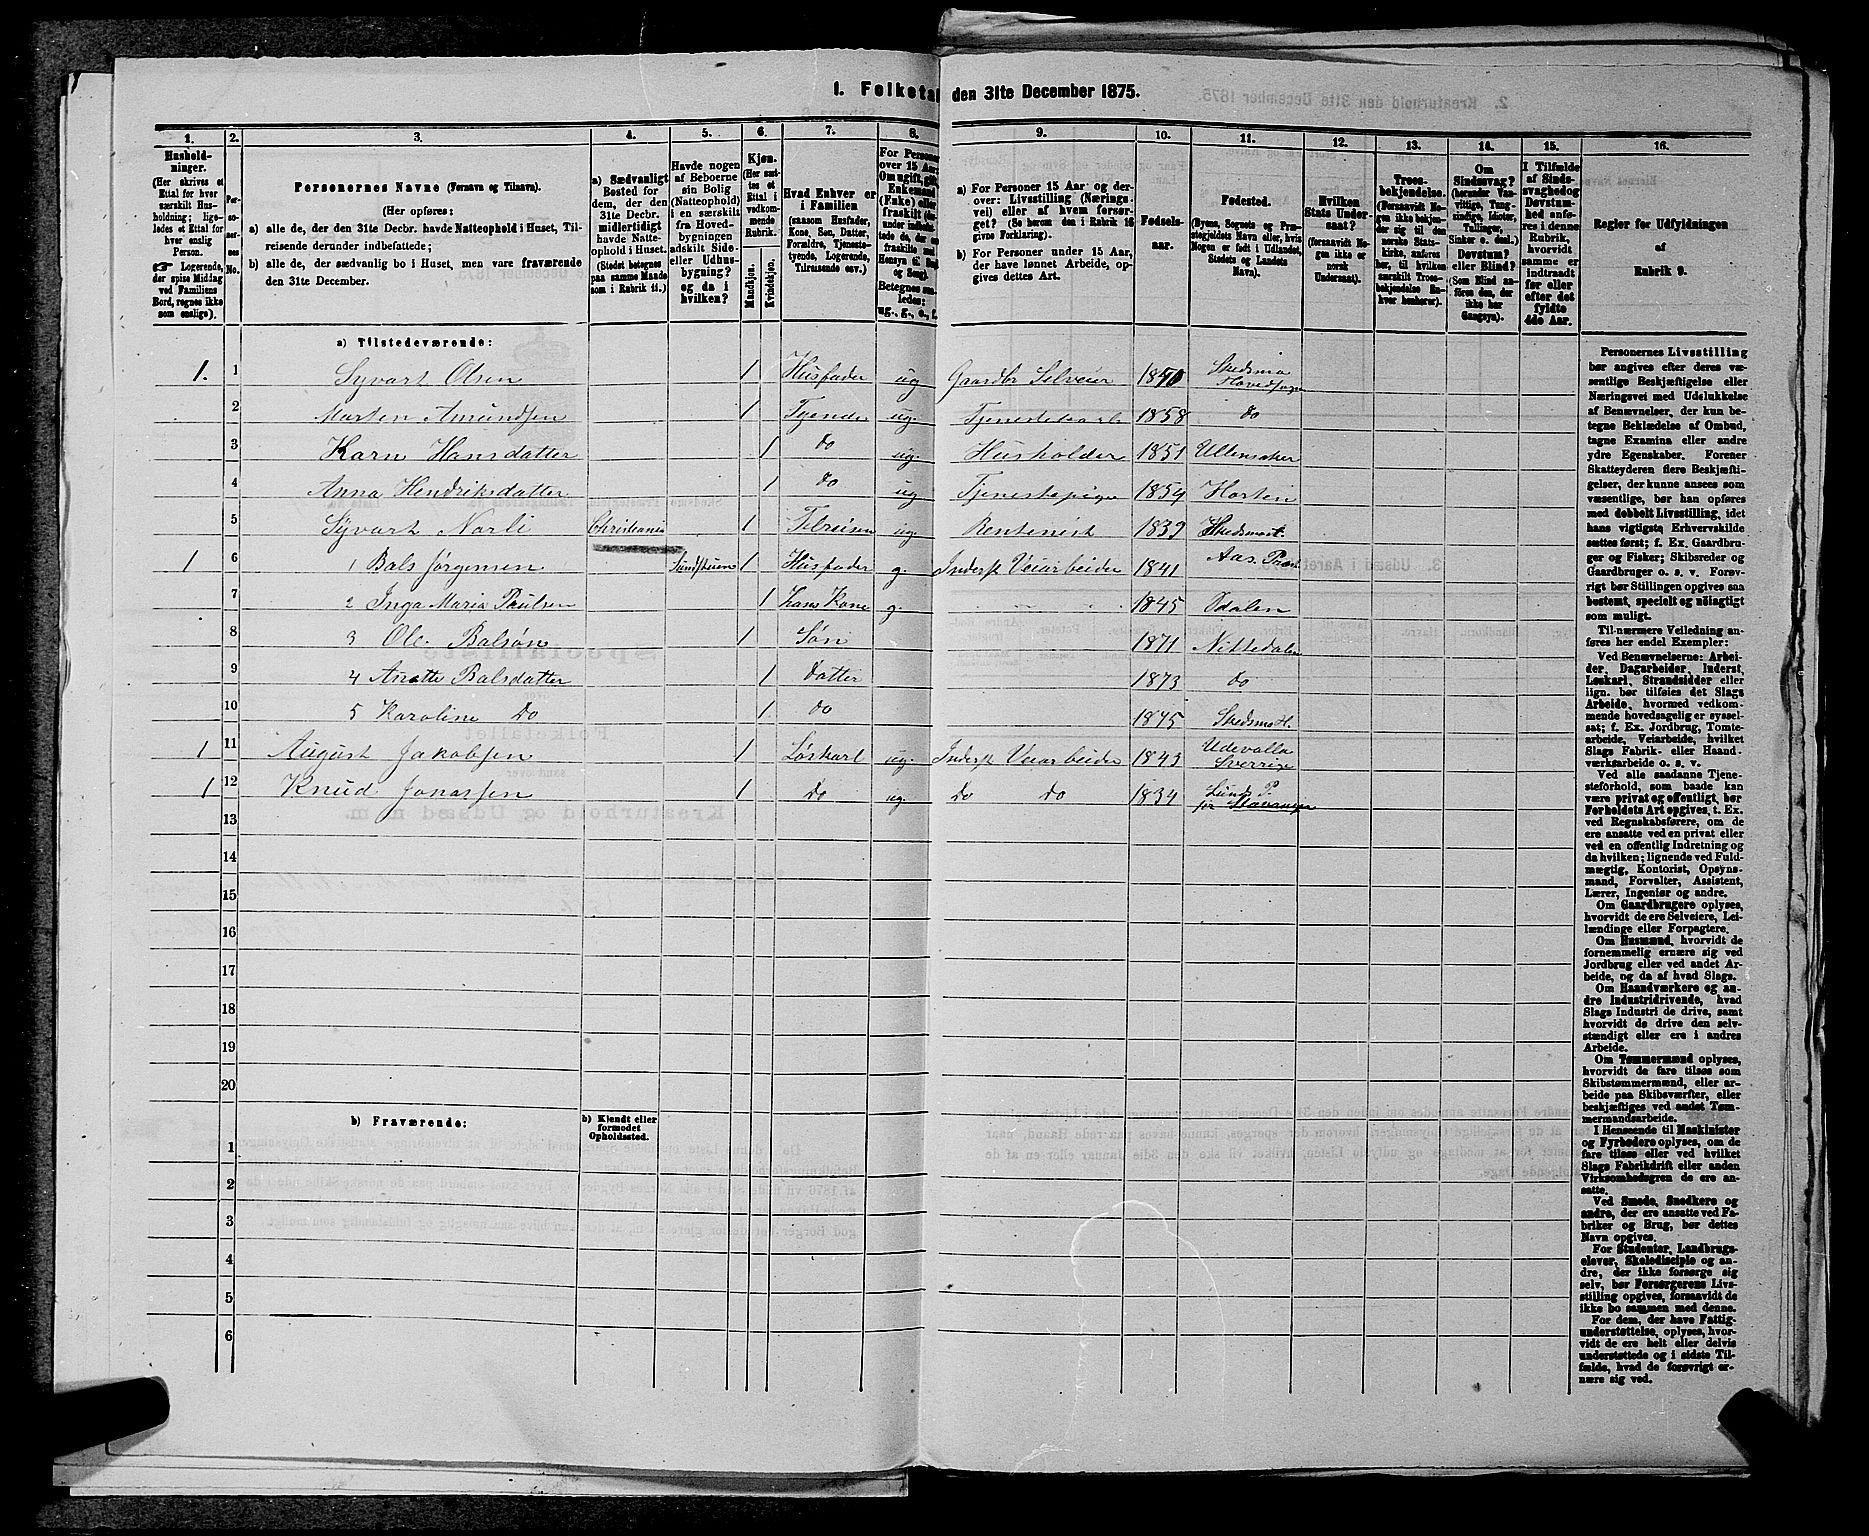 1. Folketal den 31te December 1875.
1. 2. 3. 4. 5. 6. 7. 8. 9. 10. 11. 12. 13. 14. 15. 16.
Hushold-
ninger.
(Her skrives et
Ettal for hver
særskilt Hus-
holdning; lige-
ledes et Ettal for
hver enslig
Person.
☞ Logerende,
der spise Middag
ved Familiens
Bord, regnes ikke
som enslige).
Per-
so-
ner-
nes
No.
Personernes Navne (Fornavn og Tilnavn).
(Her opføres:
a) alle de, der den 31te Decbr. havde Natteophold i Huset, Til-
reisende derunder indbefattede;
b) alle de, der sædvanlig bo i Huset, men vare fraværende
den 31te December.
a) Sædvanligt
Bosted for
dem, der den
31te Decbr.
midlertidigt
havde Natte-
ophold i Huset.
(Stedet betegnes
paa samme Maade
som i Rubrik 11.)
Havde nogen
af Beboerne
sin Bolig
(Natteophold)
i en særskilt
fra Hoved-
bygningen
adskilt Side-
eller Udhus-
bygning?
og da i
hvilken?
Kjøn.
(Her sæt-
tes et
Ettal i
vedkom-
mende
Rubrik.
Mandkjøn.
Kvindekjøn.
Hvad Enhver er
i Familien
(saasom Husfader,
Kone, Søn, Datter,
Forældre, Tjeneste-
tyende, Logerende,
Tilreisende osv.)
For Personer
over 15 Aar:
Om ugift, gift,
Enkemand
(Enke) eller
fraskilt
Betegnes saa-
ledes:
ug., g., e., f.
a) For Personer 15 Aar og der-
over: Livsstilling (Nærings-
vei) eller af hvem forsør-
get? (Se herom den i Rubrik 16
givne Forklaring).
b) For Personer under 15 Aar,
der have lønnet Arbeide, op-
gives dettes Art.
Fødsels-
aar.
Fødested.
(Byens, Sognets og Præ-
stegjeldets Navn eller, hvis
Nogen er født i Udlandet,
Stedets og Landets
Navn).
Hvilken
Stats Under-
saat?
(forsaavidt No-
gen ikke er
norsk
Undersaat).
Troes-
bekjendelse.
(Forsaavidt No-
gen ikke bekjen-
der sig til den
norske Stats-
kirke, anføres
her, til hvilken
særskilt Troes-
bekjendelse En-
hver henhører).
Om
Sindssvag?
(herunder Van-
vittige, Tung-
sindige, Idioter,
Tullinger,
Sinker o. desl.)
Døvstum?
eller Blind?
(Som Blind an-
føres den, der
ikke har
Gangsyn).
I Tilfælde
af Sinds-
svaghed og
Døvstum-
hed anfø-
res i denne
Rubrik,
hvorvidt
samme er
indtraadt
før eller
efter det
fyldte
4de Aar.
Regler for Udfyldningen
af
Rubrik 9.
a) Tilstedeværende:
1. 1 Syvart Olsen 1 Husfader ug Gaardbr Selveier 1850 Skedsmo Hovedsogn
2 Morten Amundsen 1 Tyende ug. Tjenestekarl 1858 do
3 Karn Hansdatter 1 do ug. Husholder 1851 Ullensaker
4 Anna Hendriksdatter 1 do ug Tjenestepige 1859 Horten
5 Syvart Norli Christiania 1 Tilreisn ug. Rentenist 1839 Skedsmo
1 6 1 Bals Jørgensen 1 Husfader g. Inderst Veiarbeider 1841 Aas Præst
7 2 Inga Maria Paulsen 1 hans Kone g. 1845 Odalen
8 3 Ole Balsøn 1 Søn 1871 Nittedalen
9 4 Anette Balsdatter 1 Datter 1873 do
10 5 Karoline Do 1 do 1875 Skedsmo H.
1 11 August Jakobsen 1 Løskarl ug. Inderst Veiarbeider 1843 Udevalla Sverrige
1 12 Knud Jonassen 1 Do ug. Do Do 1834 Lunds P. for Stavanger
13
14
15
16
17
18
19
20
b) Fraværende:
b) Kjendt eller
formodet
Opholdssted.
1
2
3
4
5
6
Personernes Livsstilling
bør angives efter deres væ-
sentlige Beskjæftigelse eller
Næringsvei med Udelukkelse
af Benævnelser, der kun be-
tegne Beklædelse af Ombud,
tagne Examina eller andre
ydre Egenskaber. Forener
Skatteyderen flere Beskjæfti-
gelser, der kunne ansees som
væsentlige, bør han opføres
med dobbelt Livsstilling, idet
hans vigtigste Erhvervskilde
sættes først; f. Ex. Gaardbru-
ger og Fisker; Skibsreder og
Gaardbruger o. s. v. Forøv-
rigt bør Stillingen opgives saa
bestemt, specielt og nöiagtigt
som muligt.
Til nærmere Veiledning an-
føres her endel Exempler:
Ved Benævnelserne: Arbei-
der, Dagarbeider, Inderst,
Løskarl, Strandsidder eller
lign. bør tilføies det Slags
Arbeide, hvormed vedkom-
mende hovedsagelig er syssel-
sat; f. Ex. Jordbrug, Tomte-
arbeide, Veiarbeide, hvilket
Slags Fabrik- eller Haand-
værksarbeide o. s. v.
Ved alle saadanne Tjene-
steforhold, som baade kan
være privat og offentligt, bør
Forholdets Art opgives, t. Ex.
ved Regnskabsførere, om de
ere ansatte ved en privat eller
ved en offentlig Indretning og
da hvilken; lignende ved Fuld-
mægtig, Kontorist, Opsyns-
mand, Forvalter, Assistent,
Lærer, Ingeniør og andre.
Om Gaardbrugere oplyses,
hvorvidt de ere Selveiere, Lei-
lændinge eller Forpagtere.
Om Husmænd, hvorvidt de
fornemmelig ernære sig ved
Jordbrug eller ved andet Ar-
beide, og da af hvad Slags.
Om Haandværkere og an-
dre Industridrivende, hvad
Slags Industri de drive, samt
hvorvidt de drive den selv-
stændigt eller ere i andres
Arbeide.
Om Tømmermænd oplyses,
hvorvidt de fare tilsøs som
Skibstømmermænd, eller ar-
beide paa Skibsværfter, eller
beskjæftiges ved andet Tøm-
mermandsarbeide.
I Henseende til Maskinister
og Fyrbødere oplyses, om de
fare tilsøs eller ved hvilket
Slags Fabrikdrift eller anden
Virksomhedsgren de ere an-
satte.
Ved Smede, Snedkere og
andre, der ere ansatte ved Fa-
briker og Brug, bør dettes
Navn opgives.
For Studenter, Landbrugs-
elever, Skoledisciple og an-
dre, der ikke forsørge sig
selv, bør Forsørgerens Livs-
stilling opgives, forsaavidt de
ikke bo sammen med denne.
For dem, der have Fattig-
understøttelse, oplyses, hvor-
vidt de ere helt eller delvis
understøttede og i sidste Til-
fælde, hvad de forøvrigt er-
nære sig ved.